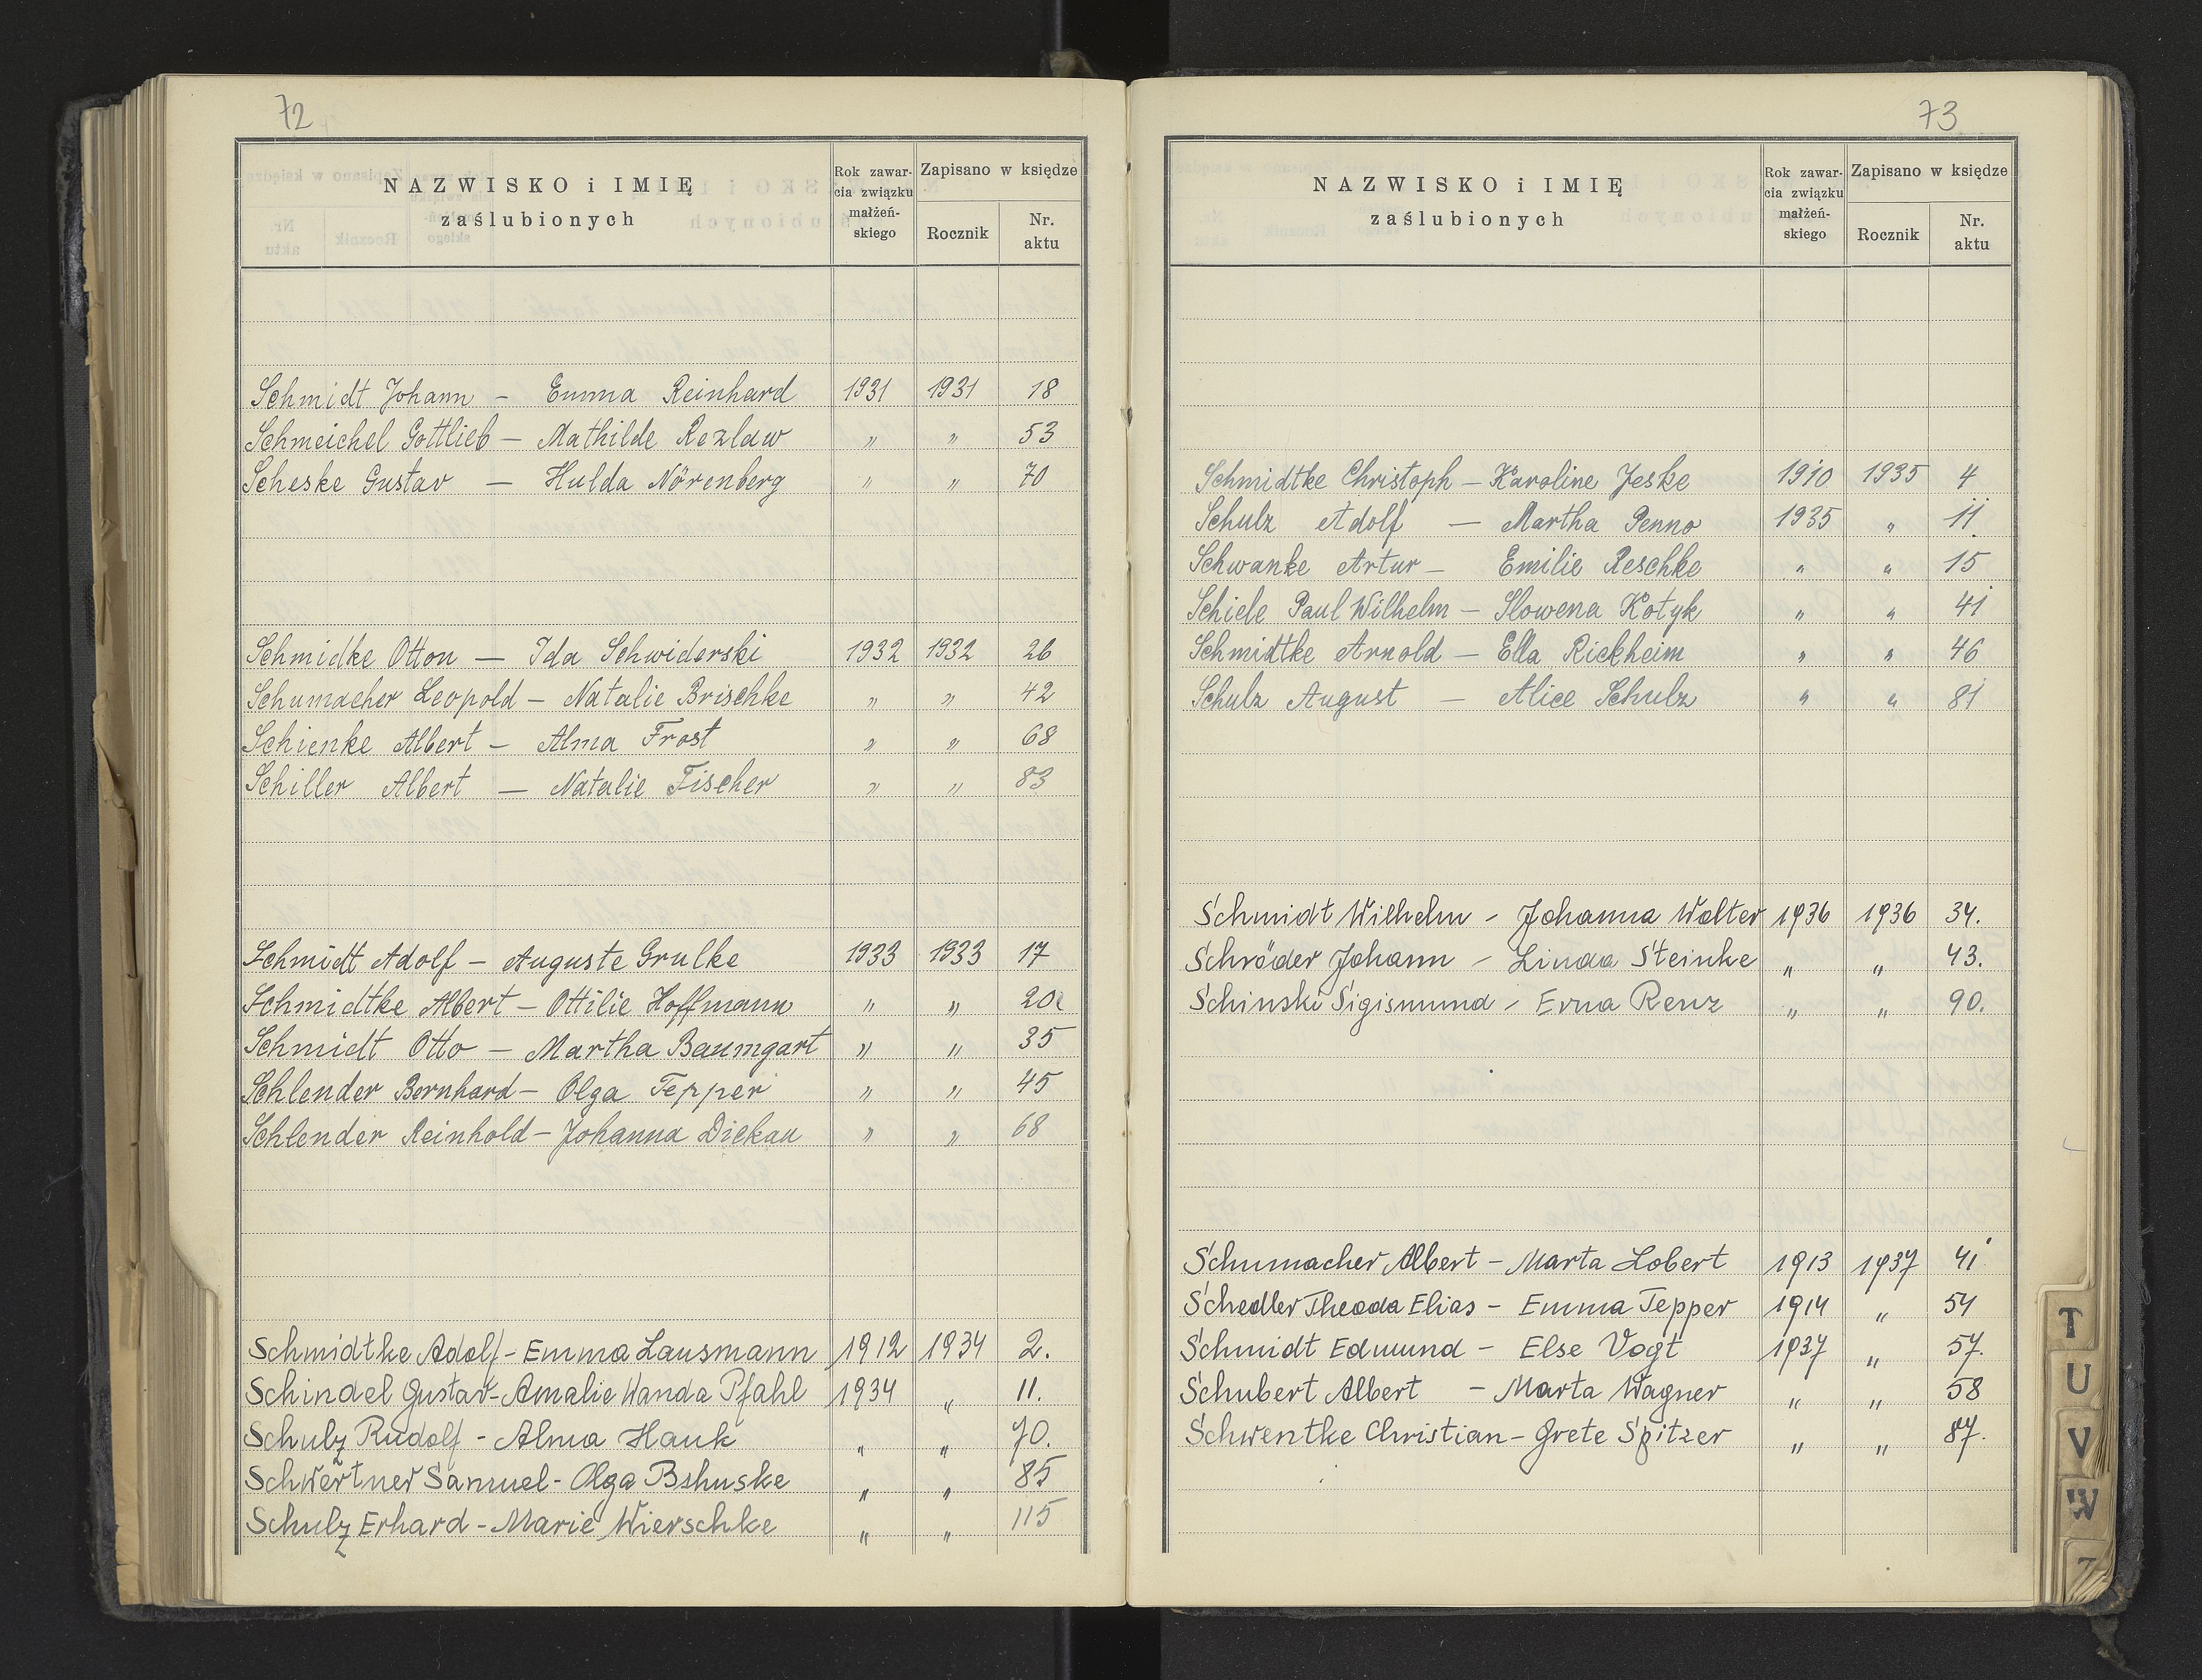 72
NAZWISKO i IMIĘ
zaślubionych
Rok zawar-
cia związku
małżeń-
skiego
Zapisano w księdze
Rocznik
Nr.
aktu
Schmidt Johann – Emma Reinhard 1931 1931 18
Schmeichel Gottlieb – Mathilde Rezlaw " " 53
Scheske Gustav – Hulda Nörenberg " " 70
Schmidke Otton – Ida Schwiderski 1932 1932 26
Schumacher Leopold – Natalie Brischke " " 42
Schienke Albert – Alma Frost " " 68
Schiller Albert – Natalie Fischer " " 83
Schmidt Adolf – Auguste Grulke 1933 1933 17
Schmidtke Albert – Ottilie Hoffmann " " 20
Schmidt Otto – Martha Baumgart " " 35
Schlender Bernhard – Olga Tepper " " 45
Schlender Reinhold – Johanna Dickau " " 68
Schmidtke Adolf - Emma Lausmann 1912 1934 2.
Schindel Gustav - Amalie Wanda Pfahl 1934 " 11.
Schulz Rudolf - Alma Hauk " " 70.
Schwertner Samuel - Olga Bshuske " " 85
Schulz Erhard - Marie Wierschke " " 115
73
NAZWISKO i IMIĘ
zaślubionych
Rok zawar-
cia związku
małżeń-
skiego
Zapisano w księdze
Rocznik
Nr.
aktu
Schmidtke Christoph – Karoline Jeske 1910 1935 4
Schulz Adolf – Martha Penno 1935 " 11
Schwanke Artur – Emilie Reschke " " 15
Schiele Paul Wilhelm – Slowena Kotyk " " 41
Schmidtke Arnold – Ella Rickheim " " 46
Schulz August – Alice Schulz " " 81
Schmidt Wilhelm - Johanna Wolter 1936 1936 34.
Schröder Johann - Linda Steinke " " 43.
Schinski Sigismund - Erna Renz " " 90.
Schumacher Albert - Marta Lobert 1913 1937 41
Schedler Theoda Elias - Emma Tepper 1914 " 54
Schmidt Edmund - Else Vogt 1937 " 57.
Schubert Albert - Marta Wagner " " 58
Schwentke Christian - Grete Spitzer " " 87.
T
U
V
W
Z